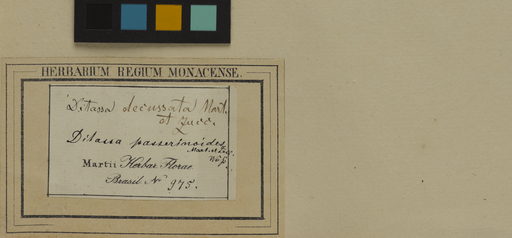 HERBARIUM REGIUM MONACENSE.
Ditassa decussata Mart.
et Zucc.
Ditassa passerinoides
Mart. et Zucc.
Martii Herbar. Florae
Brasil. No 975.